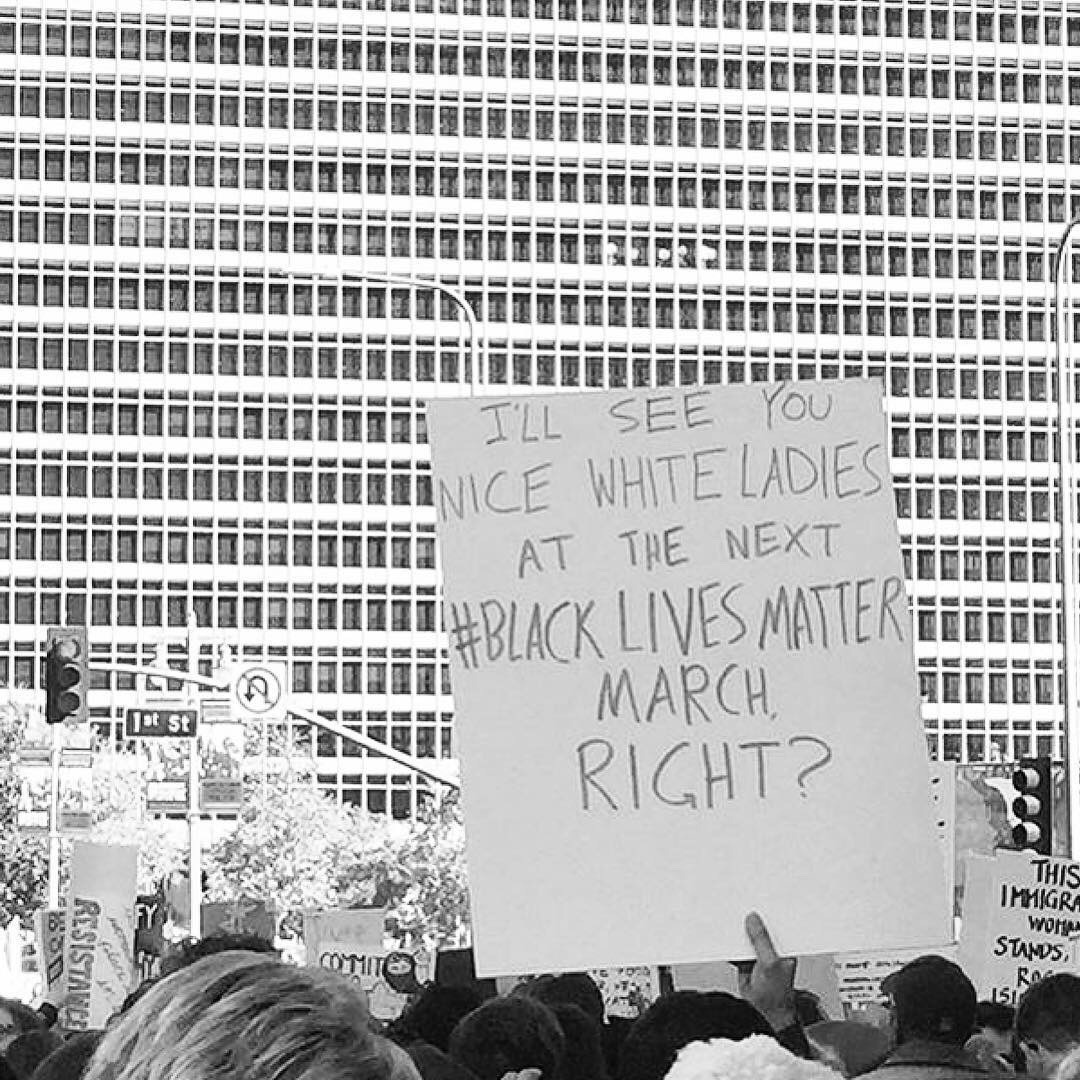 I'LL SEE YOU
NICE WHITE LADIES
AT THE NEXT
#BLACK LIVES MATTER
MARCH.
RIGHT?
1st St
RESISTANCE
COMMIT
THIS
IMMIGRA
WOMA
STANDS,